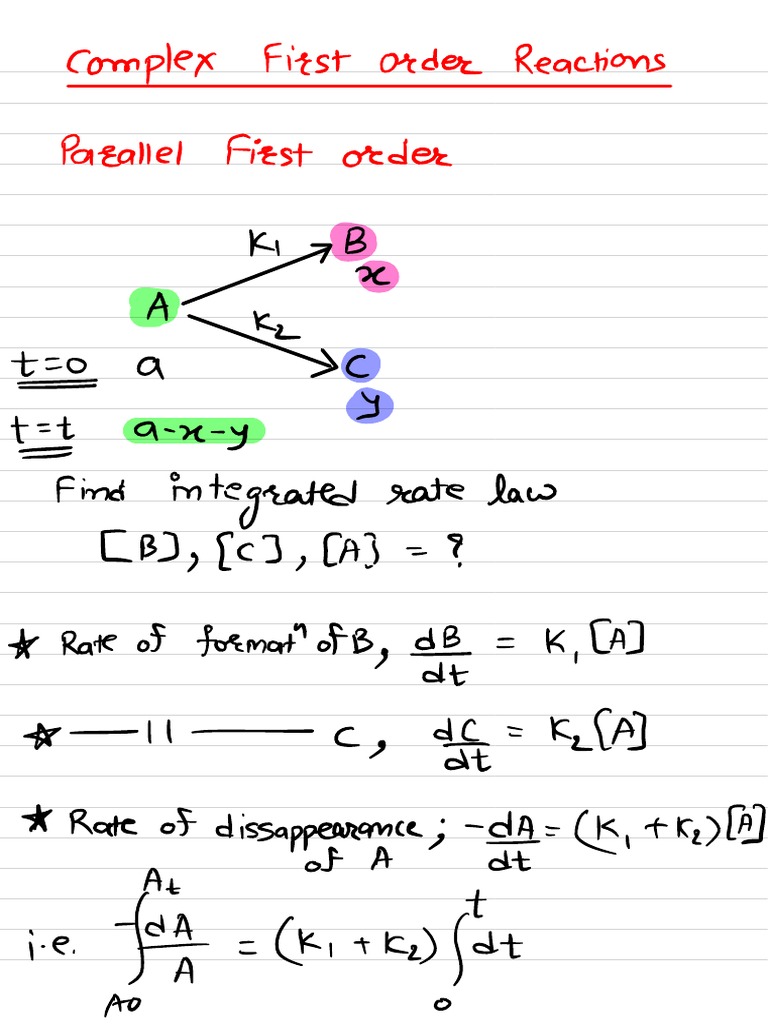 Complex First order Reactions
Parallel First order
K1 B
x
A
K2
t=0 a C
y
t=t a-x-y
Find integrated rate law
[B], [C], [A] = ?
★ Rate of formatⁿ of B, dB/dt = K₁[A]
★ —— 11 —— C, dC/dt = K₂[A]
★ Rate of dissappearance ; -dA/dt = (K₁ + K₂)[A]
of A
i.e. -∫_{A0}^{At} dA/A = (K₁ + K₂) ∫_{0}^{t} dt